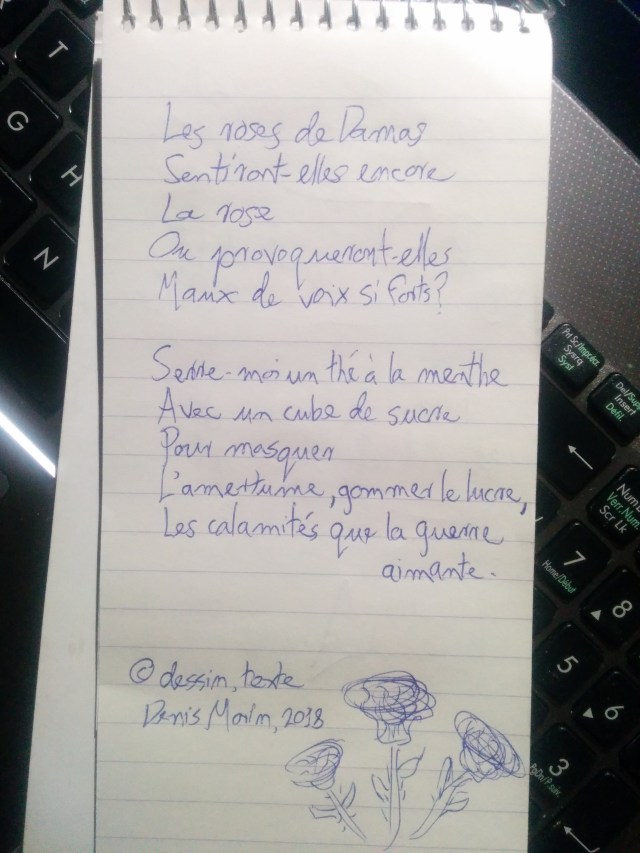 Les roses de Damas
Sentiront-elles encore
La rose
Ou provoqueront-elles
Maux de voix si forts?
Serre-moi un thé à la menthe
Avec un cube de sucre
Pour masquer
L'amertume, gommer le lucre,
Les calamités que la guerre
aimante.
© dessin, texte
Denis Morin, 2018
T
G
H
N
Prt Sc/Impréc
Sysrq
Syst
Del/Sup
Insert
Défil.
Num
Verr.Num
Scr Lk
7
Home/Début
8
5
6
3